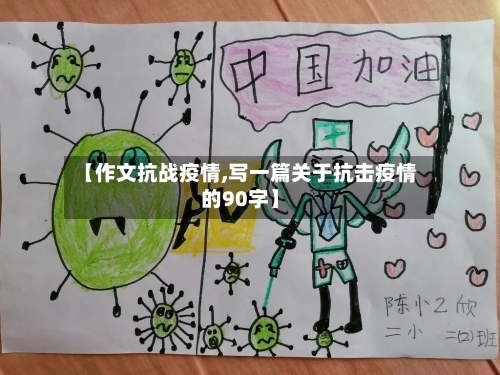 中国加油
【作文抗战疫情,写一篇关于抗击疫情
的90字】
陈小乙欣
二小 二(2)班